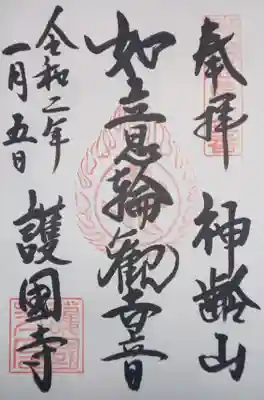 奉拝
神齢山
如意輪観世音
令和二年
一月五日
護国寺